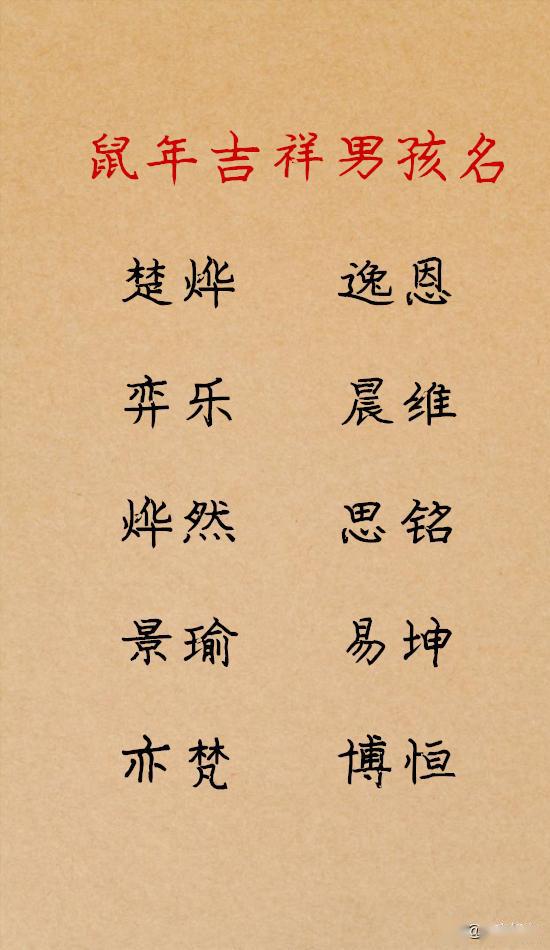 鼠年吉祥男孩名
楚烨 逸恩
弈乐 晨维
烨然 思铭
景瑜 易坤
亦梵 博恒
@